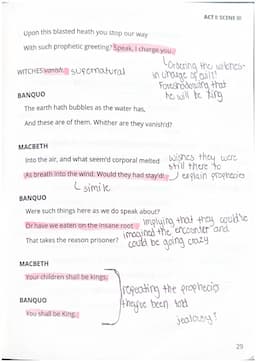 ACT I: SCENE III
Upon this blasted heath you stop our way
With such prophetic greeting? Speak, I charge you.
Ordering the witches-
in charge of evil?
Foreshadowing that
he will be king
WITCHES vanish. supernatural
BANQUO
The earth hath bubbles as the water has,
And these are of them. Whither are they vanish'd?
MACBETH
Into the air, and what seem'd corporal melted
As breath into the wind. Would they had stay'd!
wishes they were
still there to
explain prophecies
simile
BANQUO
Were such things here as we do speak about?
Or have we eaten on the insane root
That takes the reason prisoner?
implying that they could've
imagined the encounter and
could be going crazy
MACBETH
Your children shall be kings.
BANQUO
You shall be King.
repeating the prophecies
they've been told
jealousy?
29